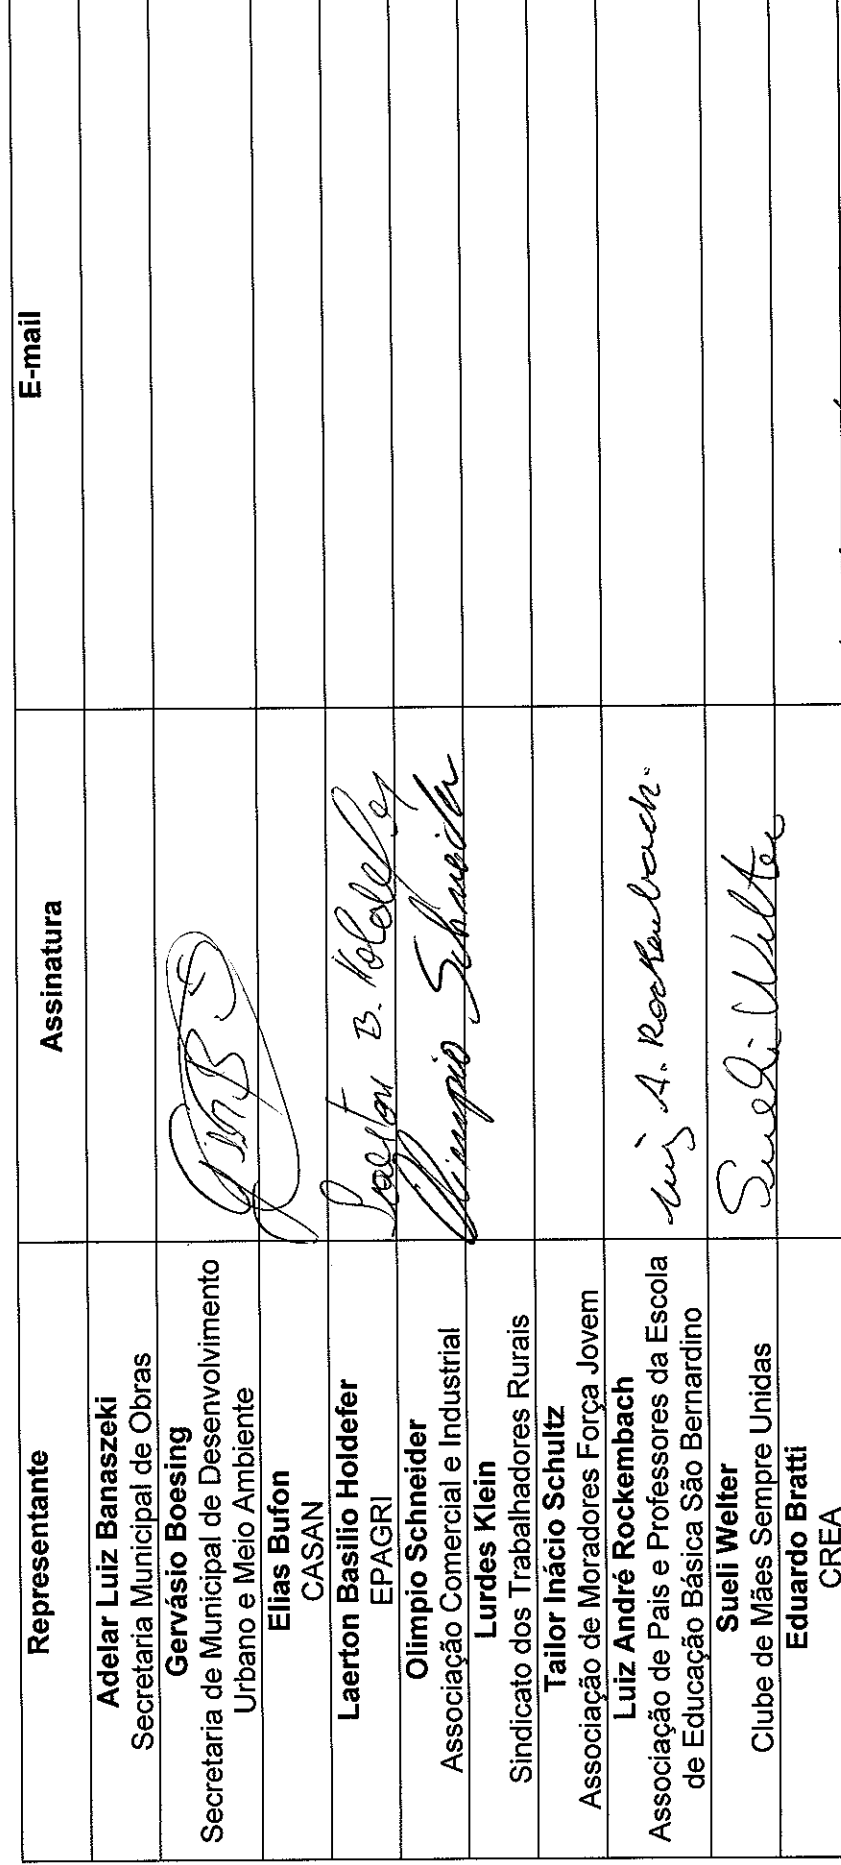 Representante Assinatura E-mail
Adelar Luiz Banaszeki
Secretaria Municipal de Obras
Gervásio Boesing
Secretaria de Municipal de Desenvolvimento
Urbano e Meio Ambiente
Elias Bufon
CASAN
Laerton Basilio Holdefer
EPAGRI
Laerton B. Holdefer
Olimpio Schneider
Associação Comercial e Industrial
Olimpio Schneider
Lurdes Klein
Sindicato dos Trabalhadores Rurais
Tailor Inácio Schultz
Associação de Moradores Força Jovem
Luiz André Rockembach
Associação de Pais e Professores da Escola
de Educação Básica São Bernardino
Luiz A. Rockenbach.
Sueli Welter
Clube de Mães Sempre Unidas
Sueli Welter
Eduardo Bratti
CREA